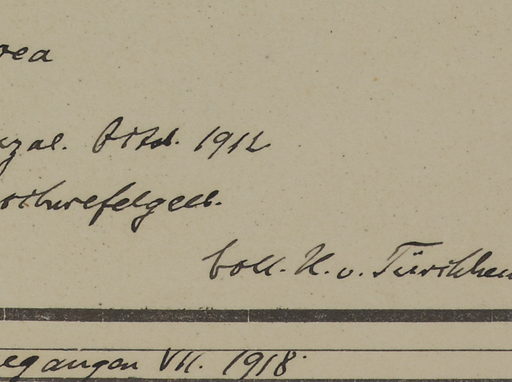 rea
zal. Oktob. 1912
schwefelgelb.
Coll. H. v. Türckhei
egangen VII. 1918